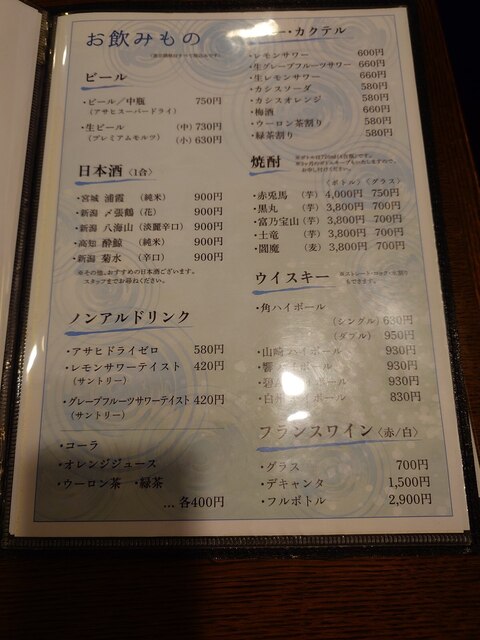 お飲みもの
ビール
・ビール／中瓶 750円
（アサヒスーパードライ）
・生ビール （中）730円
（プレミアムモルツ） （小）630円
日本酒〈1合〉
・宮城 浦霞 （純米） 900円
・新潟 〆張鶴（花） 900円
・新潟 八海山（淡麗辛口） 900円
・高知 酔鯨 （純米） 900円
・新潟 菊水 （辛口） 900円
※その他、おすすめの日本酒ございます。
スタッフまでお尋ねください。
ノンアルドリンク
・アサヒドライゼロ 580円
・レモンサワーテイスト 420円
（サントリー）
・グレープフルーツサワーテイスト 420円
（サントリー）
・コーラ
・オレンジジュース
・ウーロン茶 ・緑茶
… 各400円
ー・カクテル
・レモンサワー 600円
・生グレープフルーツサワー 660円
・生レモンサワー 660円
・カシスソーダ 580円
・カシスオレンジ 580円
・梅酒 660円
・ウーロン茶割り 580円
・緑茶割り 580円
焼酎
〈ボトル〉〈グラス〉
・赤兎馬 （芋） 4,000円 750円
・黒丸 （芋） 3,800円 700円
・富乃宝山（芋） 3,800円 700円
・土竜 （芋） 3,800円 700円
・閻魔 （麦） 3,800円 700円
ウイスキー ※ストレート・ロック・水割り
もできます。
・角ハイボール
（シングル） 630円
（ダブル） 950円
・山崎ハイボール 930円
・響 ハイボール 930円
ボール 930円
・白州 イボール 830円
フランスワイン〈赤/白〉
・グラス 700円
・デキャンタ 1,500円
・フルボトル 2,900円